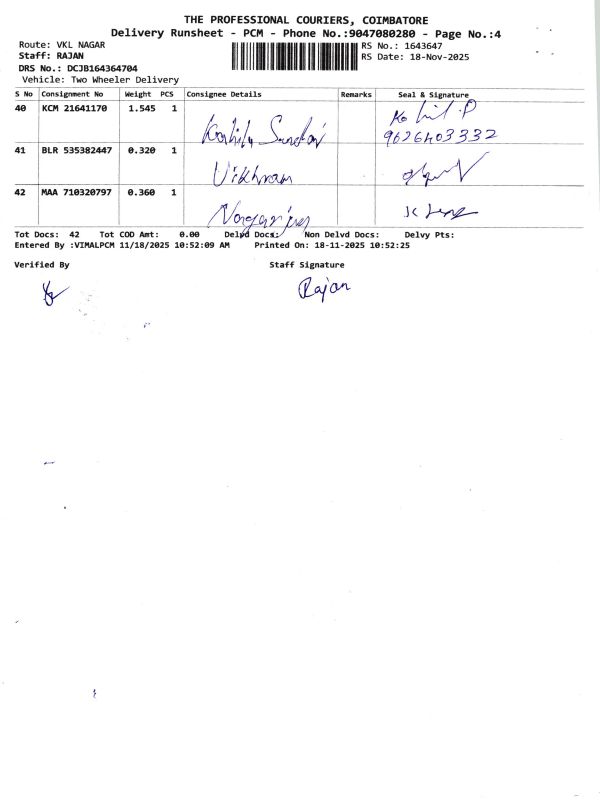 THE PROFESSIONAL COURIERS, COIMBATORE
Delivery Runsheet - PCM - Phone No.:9047080280 - Page No.:4
Route: VKL NAGAR
RS No.: 1643647
Staff: RAJAN
RS Date: 18-Nov-2025
DRS No.: DCJB164364704
Vehicle: Two Wheeler Delivery
S No Consignment No Weight PCS Consignee Details Remarks Seal & Signature
40 KCM 21641170 1.545 1
9626403332
41 BLR 535382447 0.320 1 Vikhram
42 MAA 710320797 0.360 1
Tot Docs: 42 Tot COD Amt: 0.00 Delvd Docs: Non Delvd Docs: Delvy Pts:
Entered By :VIMALPCM 11/18/2025 10:52:09 AM Printed On: 18-11-2025 10:52:25
Verified By Staff Signature
Rajan